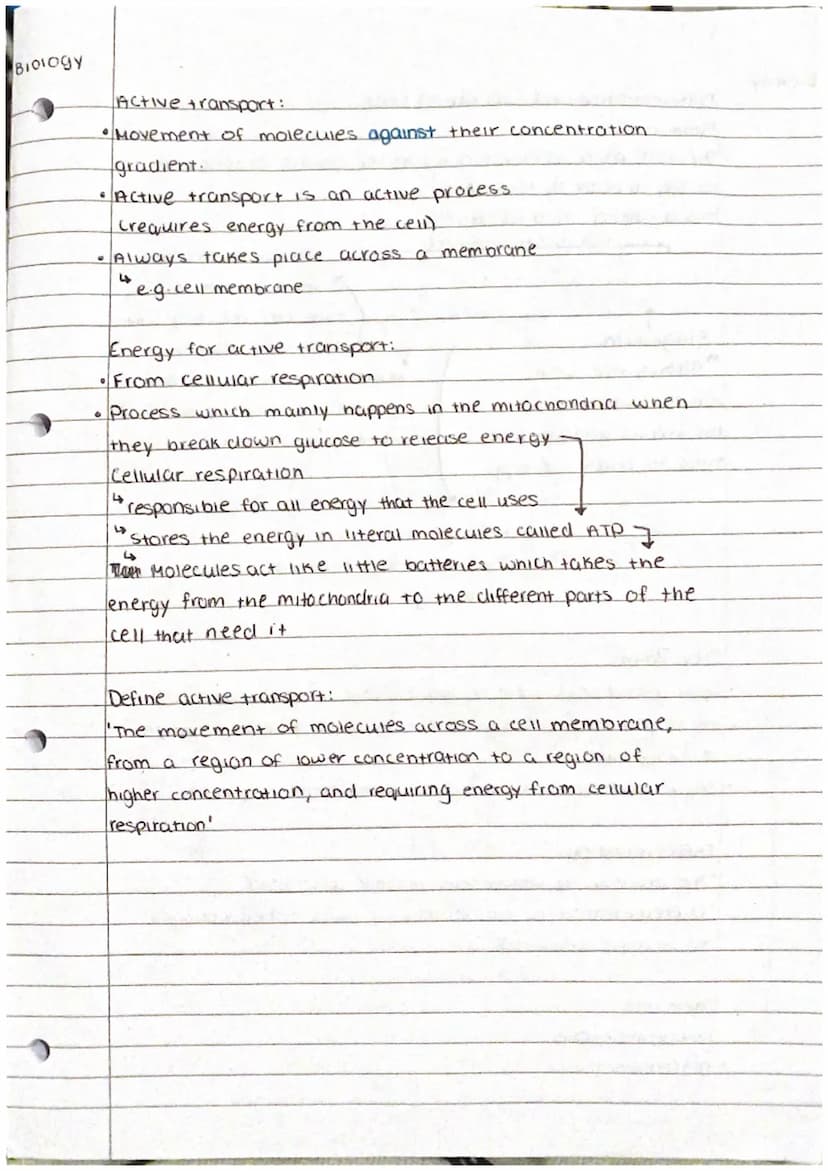 Biology
Active transport:
• Movement of molecules against their concentration
gradient.
• Active transport is an active process
(requires energy from the cell)
• Always takes place across a membrane
↳ e.g. cell membrane
Energy for active transport:
• From cellular respiration
• Process which mainly happens in the mitochondria when
they break down glucose to release energy
Cellular respiration
↳ responsible for all energy that the cell uses
↳ Stores the energy in literal molecules called ATP
↳ Molecules act like little batteries which takes the
energy from the mitochondria to the different parts of the
cell that need it
Define active transport:
'The movement of molecules across a cell membrane,
from a region of lower concentration to a region of
higher concentration, and requiring energy from cellular
respiration'